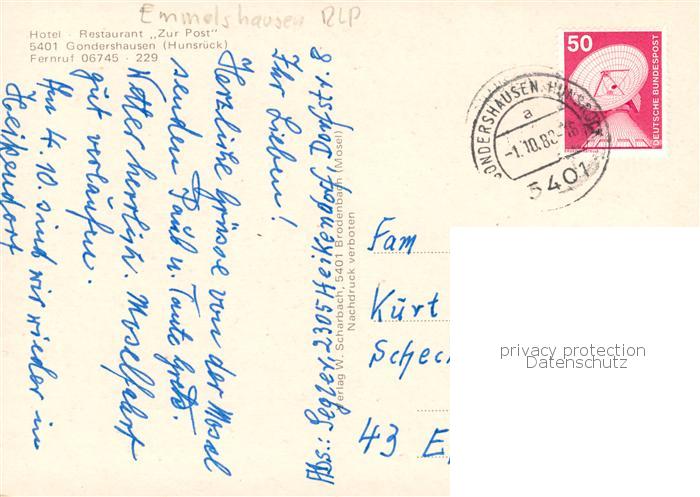 Emmelshausen RLP
Hotel - Restaurant „Zur Post"
5401 Gondershausen (Hunsrück)
Fernruf 06745 - 229
50
DEUTSCHE BUNDESPOST
GONDERSHAUSEN, HUNSRÜCK
a
-1.10.80
5401
Abs.: 2305 Heikendorf
Ihr Lieben!
Herzliche Grüsse von der Mosel
senden Paul u. Tante Grete.
Wetter herrlich. Moselfahrt
gut verlaufen.
Am 4.10. sind wir wieder in
Heikendorf
Verlag W. Scharbach, 5401 Brodenbach (Mosel)
Nachdruck verboten
Fam
Kurt
Schec
43 E
privacy protection
Datenschutz